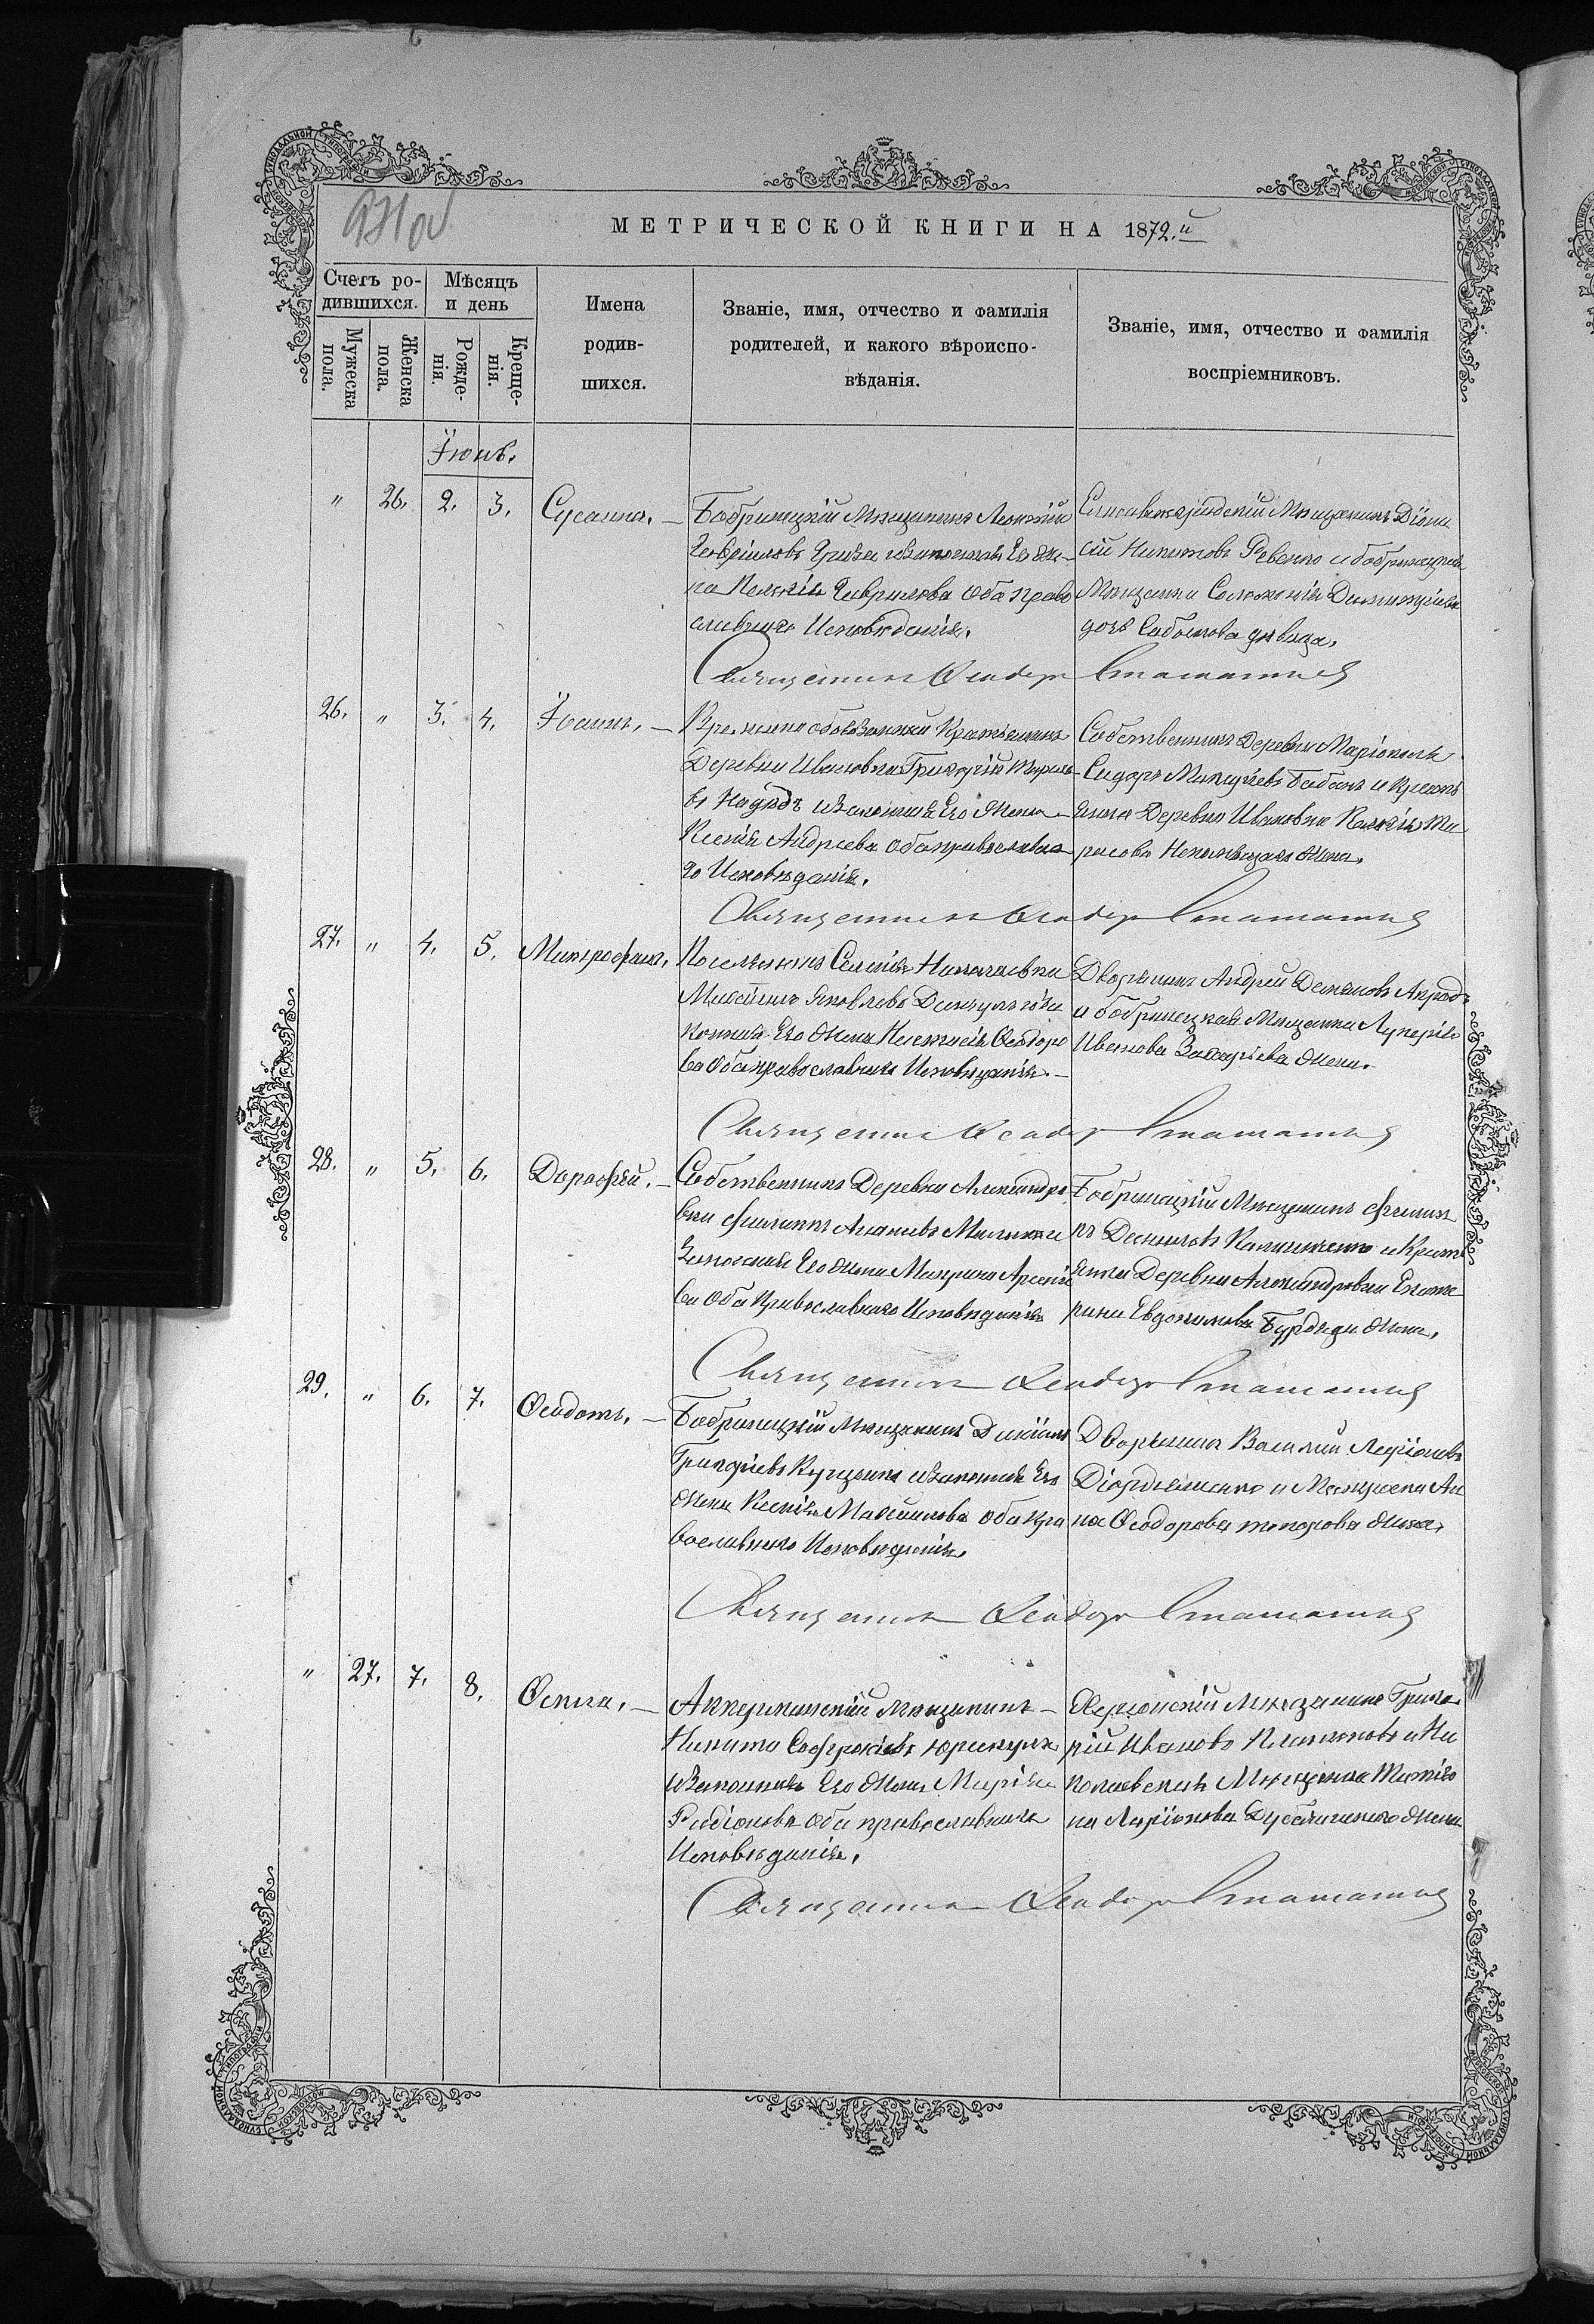 МЕТРИЧЕСКОЙ КНИГИ НА 1872.й
Счетъ ро-
дившихся.
Мѣсяцъ
и день
Имена
родив-
шихся.
Званіе, имя, отчество и фамилія
родителей, и какого вѣроиспо-
вѣданія.
Званіе, имя, отчество и фамилія
воспріемниковъ.
Мужеска
пола.
Женска
пола.
Рожде-
нія.
Креще-
нія.
Іюнь.
" 26. 2. 3. Сусанна. –
Бобринецкій Мѣщанинъ Леонтій
Гавріиловъ и законная Его же-
на Пелагія Гаврилова Оба право
славнаго Исповѣданія.
Елисаветградскій Мѣщанинъ Діони
сій Никитовъ Ревенко и бобринецкая
Мѣщанка Соломонія Димитріева
дочь девица.
Священникъ Ѳеодоръ Стаматинъ
26. " 3. 4. Іоаннъ. –
Временно обовязанный Крестьянинъ
Деревни Ивановки Григорій
и законная Его Жена
Ксенія Андреева оба православна
го Исповѣданія.
Собственникъ Деревни Маріополь
Сидоръ Бабакъ и Крестъ
янка Деревни Ивановки Пелагія
жена.
Священникъ Ѳеодоръ Стаматинъ
27. " 4. 5. Митрофанъ.
Поселянинъ Селенія Николаевки
Яковлевъ и за
конная Его Жена Ѳеодоро
ва Оба православнаго Исповѣданія. –
Дворянинъ Андрей Демьяновъ
и бобринецкая Мѣщанка Лукерія
Иванова Захарьева жена.
Священникъ Ѳеодоръ Стаматинъ
28. " 5. 6. Дороѳей. –
Собственникъ Деревни Александро
вки Филиппъ Ананіевъ и
Законная Его Жена Марина Арсеніе
ва Оба Православнаго Исповѣданія
Бобринецкій Мѣщанинъ Филип
пъ Даниловъ и Кресть
янка Деревни Александровки Екате
рина Евдокимова жена.
Священникъ Ѳеодоръ Стаматинъ
29. " 6. 7. Ѳеодотъ. –
Бобринецкій Мѣщанинъ Даніилъ
Григоріевъ и законная Его
Жена Ксенія Максимова оба пра
вославнаго Исповѣданія.
Дворянинъ Василій Ларіоновъ
и Мѣщанка Ан
на Ѳеодорова жена.
Священникъ Ѳеодоръ Стаматинъ
" 27. 7. 8. Ѳекла. –
Аккерманскій Мѣщанинъ –
Никита Софроніевъ
и Законная Его Жена Марія
Радіонова Оба православнаго
Исповѣданія.
Херсонскій Мѣщанинъ Григо
рій Ивановъ Платоновъ и Ни
колаевская Мѣщанка Татія
на Ларіонова жена
Священникъ Ѳеодоръ Стаматинъ